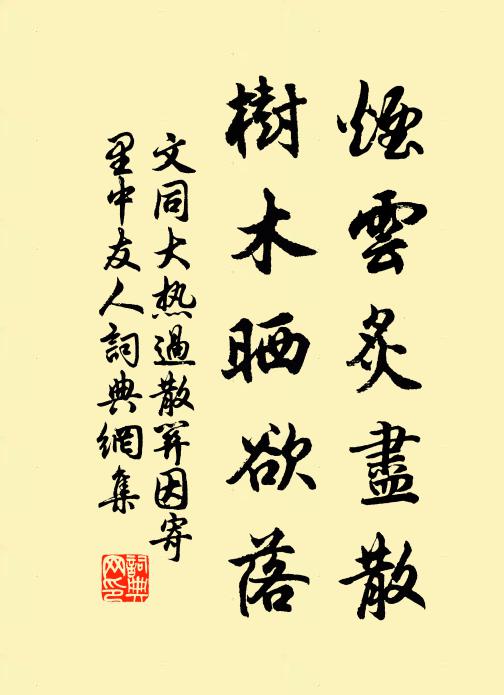 煙雲炙盡散
樹木晒欲落
文同大热過散關因寄
里中友人詞典網集
詞典
网印